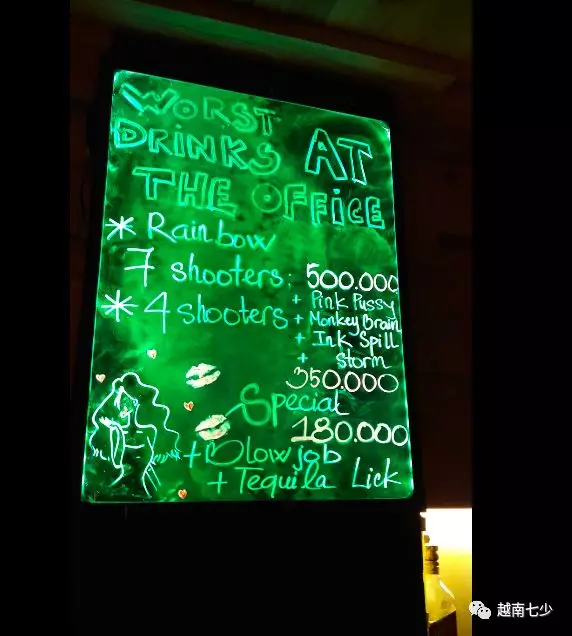 WORST
DRINKS AT
THE OFFICE
* Rainbow
7 shooters: 500.000
* 4 shooters + Pink Pussy
+ Monkey Brain
+ Ink Spill
+ Storm
350.000
Special
180.000
+ Blowjob
+ Tequila Lick
越南七少